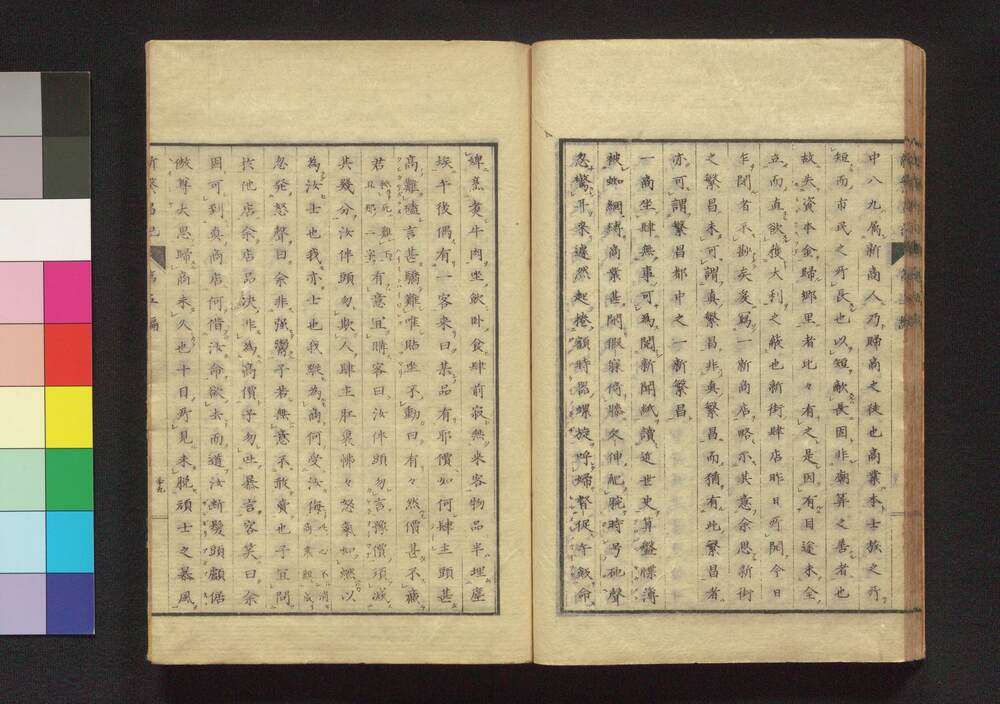 中八九屬新商人乃歸商之徒也商業本士族之所
短而市民之所長也以短敵長因非廟算之善者也
故失資本金歸鄉里者比々有之是因有目途未全
立而直欲獲大利之蔽也新街肆店昨日所開今日
乍閉者不尠矣爰寫一新商店略示其意余思新街
之繁昌未可謂眞繁昌非眞繁昌而猶有此繁昌者
亦可謂繁昌都中之一新繁昌
一商坐肆無事可為閱新聞紙讀近世史算盤牒簿
被蜘綱縛商業甚閑假寐倚膝欠伸配腕時号砲聲
忽驚耳來遽然起捲顧時器螺旋呼婦督促午飯命
婢烹煑牛肉坐飲卧食肆前寂然來客物品半埋塵
埃午後偶有一客來曰某品有耶價如何肆主頭甚
高難禮言甚驕難唯貼坐不動曰有々然價甚不廉
君有意宜購客曰汝倅頭勿言豫價須減
其幾分汝倅頭勿欺人肆主肛裏怫々怒氣如燃以
為汝士也我亦士也我縱為商何受汝侮
忽發怒聲曰余非强鬻子若無意不敢賣也子宜問
找他店余店品决非為高價子勿吐暴言容笑曰余
固可到眞商店何借汝命欲去而道汝斷髮頭顱倨
傲尊大思歸商未久也十目所見未脱頑士之暴風
新繁昌記 第五編 十九